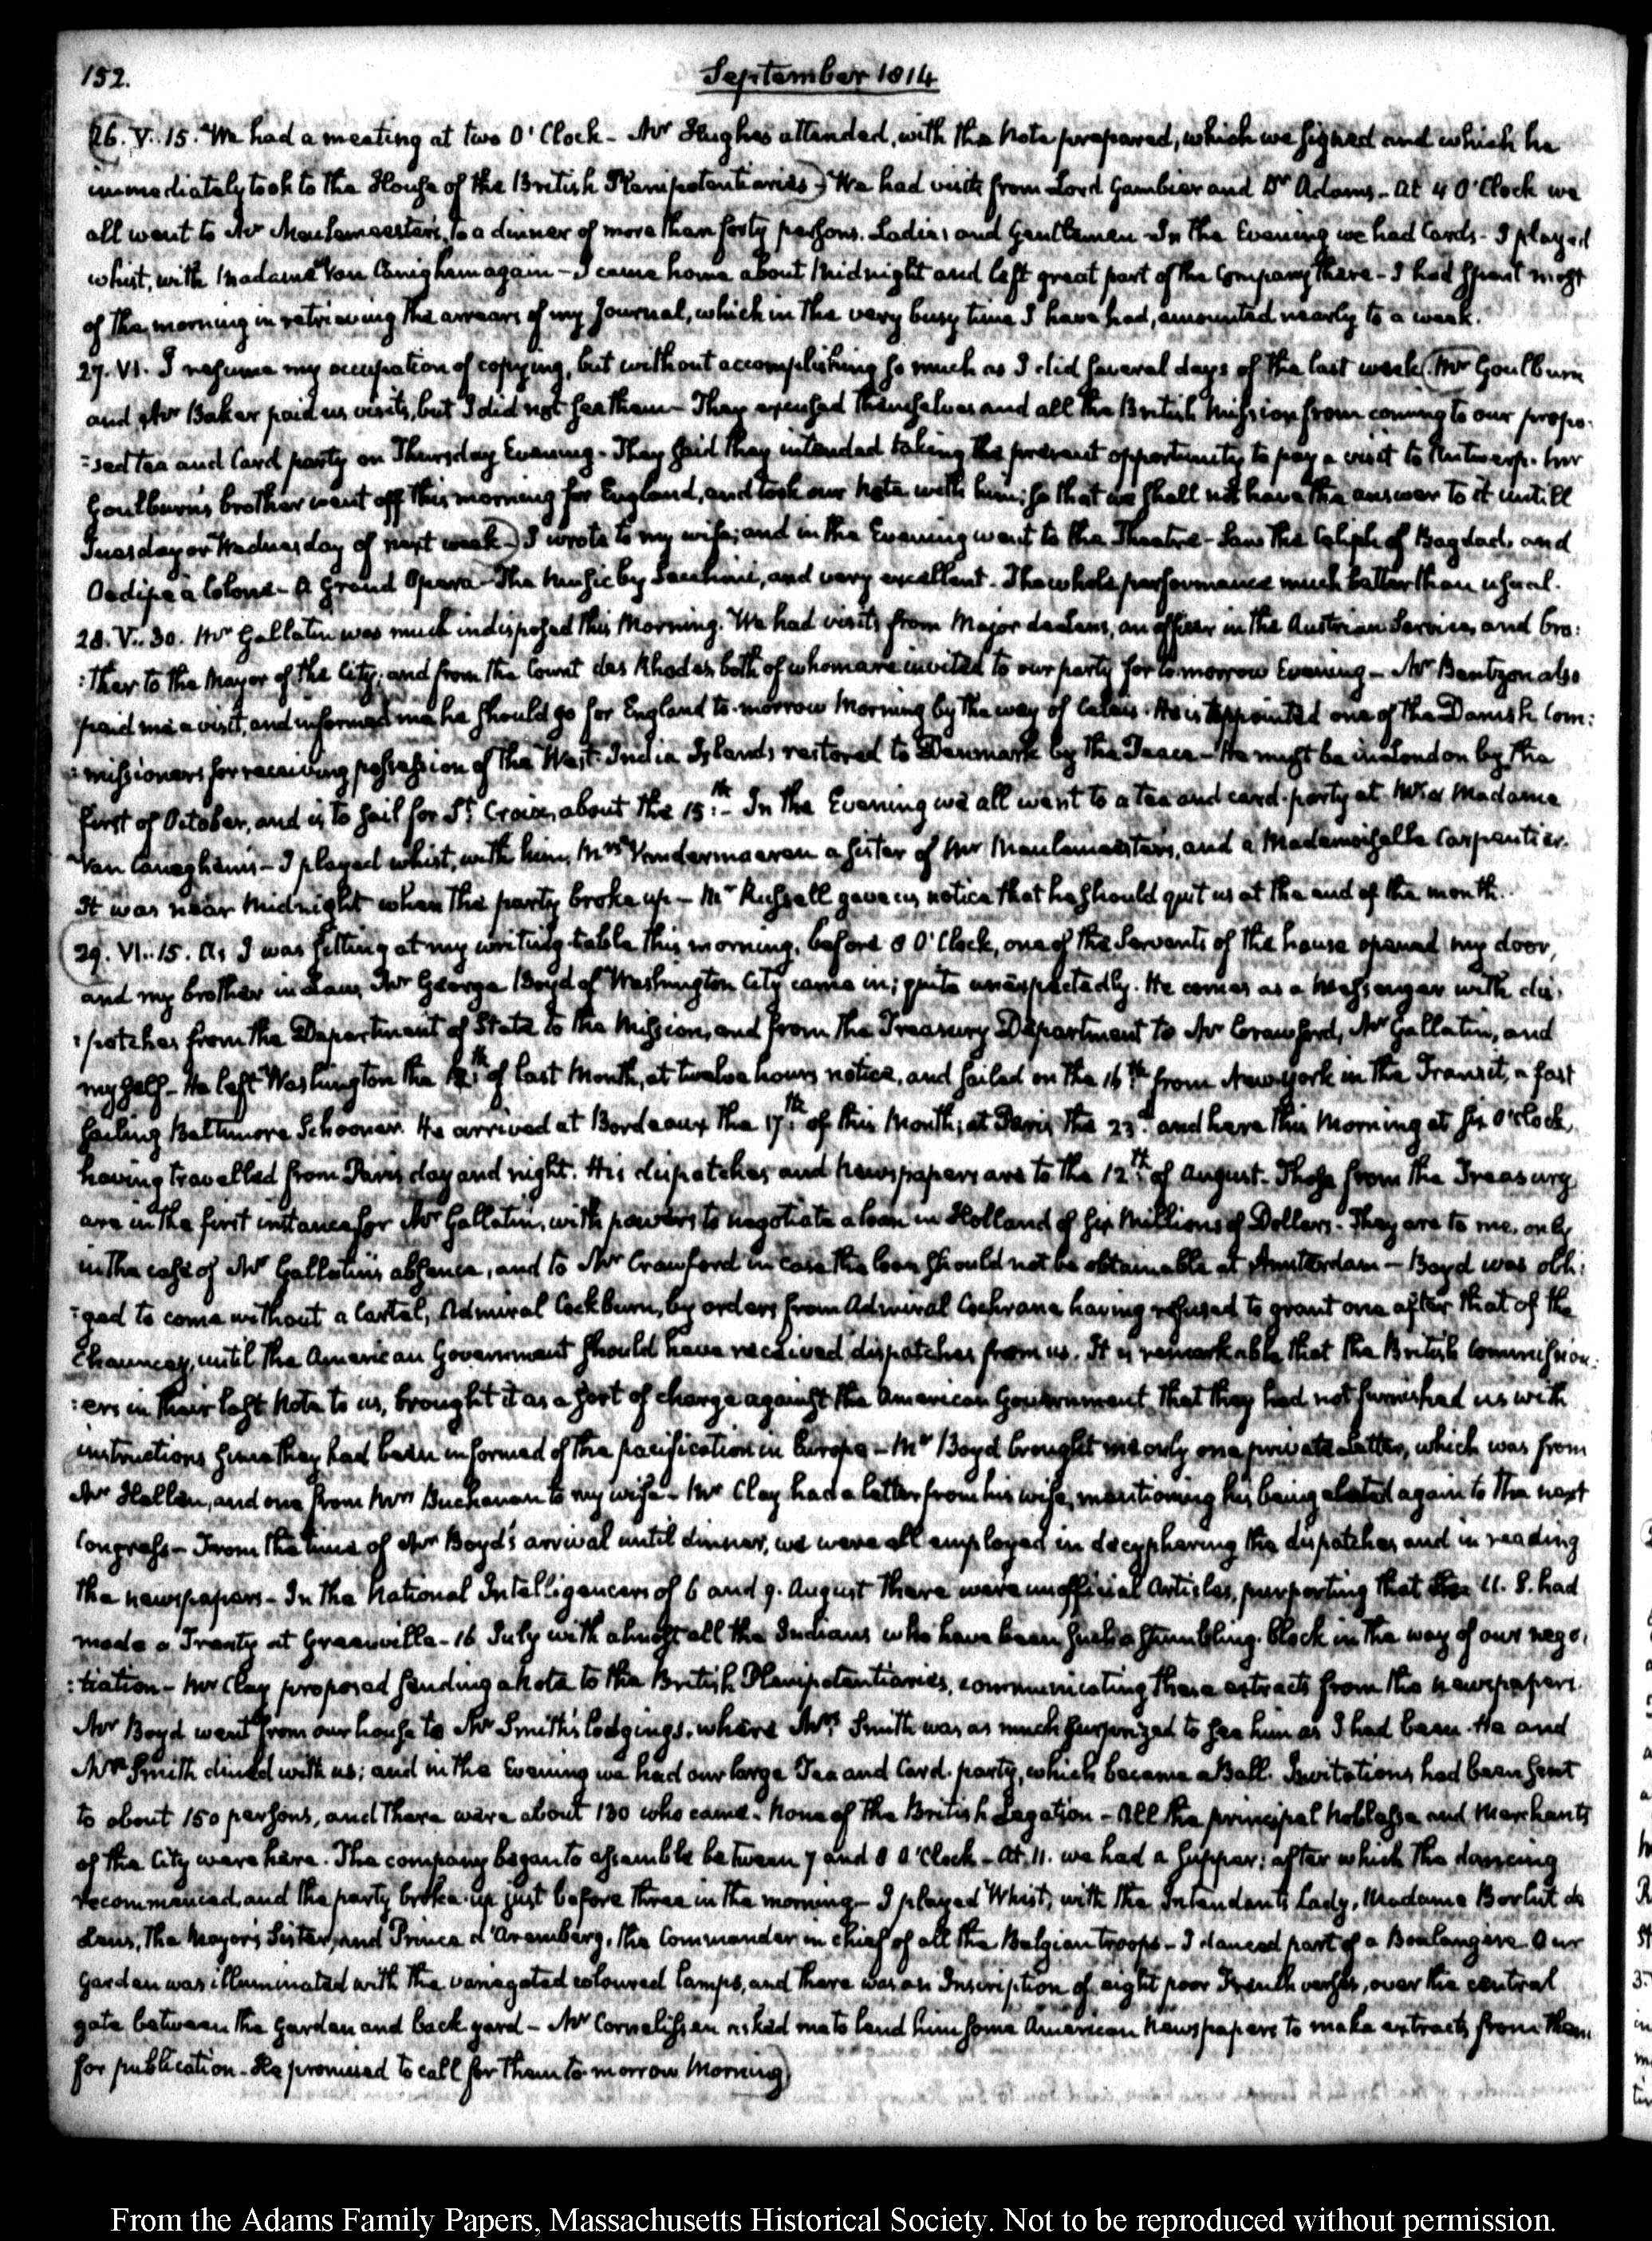 152.
September 1814
26. V. 15. We had a meeting at two O'Clock - Mr Hughes attended, with the Note prepared, which we signed and which he
immediately took to the House of the British Plenipotentiaries - We had visits from Lord Gambier and Dr Adams - At 4 O'Clock we
all went to Mr Meulemeester's, to a dinner of more than forty persons. Ladies and Gentlemen - In the Evening we had Cards - I played
whist, with Madame Van Canighem again - I came home about Midnight and left great part of the Company there - I had spent most
of the morning in retrieving the arrears of my Journal, which in the very busy time I have had, amounted nearly to a week.
27. VI. I resume my occupation of copying, but without accomplishing so much as I did several days of the last week. Mr Goulburn
and Mr Baker paid us visits, but I did not see them - They excused themselves and all the British Mission from coming to our propo-
=sed tea and Card party on Thursday Evening - They said they intended taking the present opportunity to pay a visit to Antwerp. Mr
Goulburn's brother went off this morning for England, and took our Note with him; so that we shall not have the answer to it untill
Tuesday or Wednesday of next week - I wrote to my wife; and in the Evening went to the Theatre - Saw the Caliph of Bagdad, and
Oedipe à Colone - A Grand Opera - The Music by Sacchini, and very excellent. The whole performance much better than usual.
28. V. 30. Mr Gallatin was much indisposed this Morning. We had visits from Major de Lens, an officer in the Austrian Service, and bro:
:ther to the Mayor of the City; and from the Count des Rhodes, both of whom are invited to our party for to-morrow Evening - Mr Bentzon also
paid me a visit, and informed me he should go for England to-morrow Morning by the way of Calais. He is appointed one of the Danish Com:
:missioners for receiving possession of the West-India Islands restored to Denmark by the Peace - He must be in London by the
first of October, and is to sail for St. Croix, about the 15:th - In the Evening we all went to a tea and card-party at Mr & Madame
Van Caneghem's - I played whist, with him, Mrs Vandermaeren a sister of Mr Meulemeester's, and a Mademoiselle Carpentier.
It was near Midnight when the party broke up - Mr Russell gave us notice that he should quit us at the end of the month.
29. VI. 15. As I was sitting at my writing-table this morning, before 8 O'Clock, one of the Servants of the house opened my door,
and my brother in Law, Mr George Boyd of Washington City came in; quite unexpectedly. He comes as a Messenger with dis:
:patches from the Department of State to the Mission, and from the Treasury Department to Mr Crawford, Mr Gallatin, and
myself - He left Washington the 12:th of last Month, at twelve hours notice, and sailed on the 16:th from New-York in the Transit, a fast
sailing Baltimore Schooner. He arrived at Bordeaux the 17:th of this Month; at Paris the 23:d and here this Morning at six O'Clock,
having travelled from Paris day and night. His dispatches and Newspapers are to the 12:th of August - Those from the Treasury
are in the first instance for Mr Gallatin, with powers to negotiate a loan in Holland of six Millions of Dollars - They are to me, only
in the case of Mr Gallatin's absence, and to Mr Crawford in case the loan should not be obtainable at Amsterdam - Boyd was obli:
:ged to come without a Cartel, Admiral Cockburn, by orders from Admiral Cochrane having refused to grant one after that of the
Chauncey, until the American Government should have received dispatches from us. It is remarkable that the British Commission:
:ers in their last Note to us, brought it as a sort of charge against the American Government, that they had not furnished us with
instructions since they had been informed of the pacification in Europe - Mr Boyd brought me only one private letter, which was from
Mr Hellen, and one from Mrs Buchanan to my wife - Mr Clay had a letter from his wife, mentioning his being elected again to the next
Congress - From the time of Mr Boyd's arrival until dinner, we were all employed in decyphering the dispatches and in reading
the newspapers - In the National Intelligencers of 6 and 9. August there were unofficial Articles, purporting that the U. S. had
made a Treaty at Greenville - 16 July with almost all the Indians who have been such a stumbling-block in the way of our nego:
:tiation - Mr Clay proposed sending a Note to the British Plenipotentiaries, communicating these extracts from the newspapers.
Mr Boyd went from our house to Mr Smith's lodgings, where Mrs Smith was as much surprized to see him as I had been. He and
Mrs Smith dined with us; and in the Evening we had our large Tea and Card-party, which became a Ball. Invitations had been sent
to about 150 persons, and there were about 130 who came. None of the British Legation - All the principal Noblesse and Merchants
of the City were here. The company began to assemble between 7 and 8 O'Clock - At 11. we had a Supper; after which the dancing
recommenced, and the party broke up just before three in the morning - I played Whist, with the Intendant's Lady, Madame Borlut de
Lens, the Mayor's Sister, and Prince d'Aremberg, the Commander in chief of all the Belgian troops - I danced part of a Boulangère. Our
garden was illuminated with the variegated coloured lamps, and there was an Inscription of eight poor French verses, over the central
gate between the Garden and back yard - Mr Cornelissen asked me to lend him some American Newspapers to make extracts from them
for publication. He promised to call for them to-morrow Morning
From the Adams Family Papers, Massachusetts Historical Society. Not to be reproduced without permission.